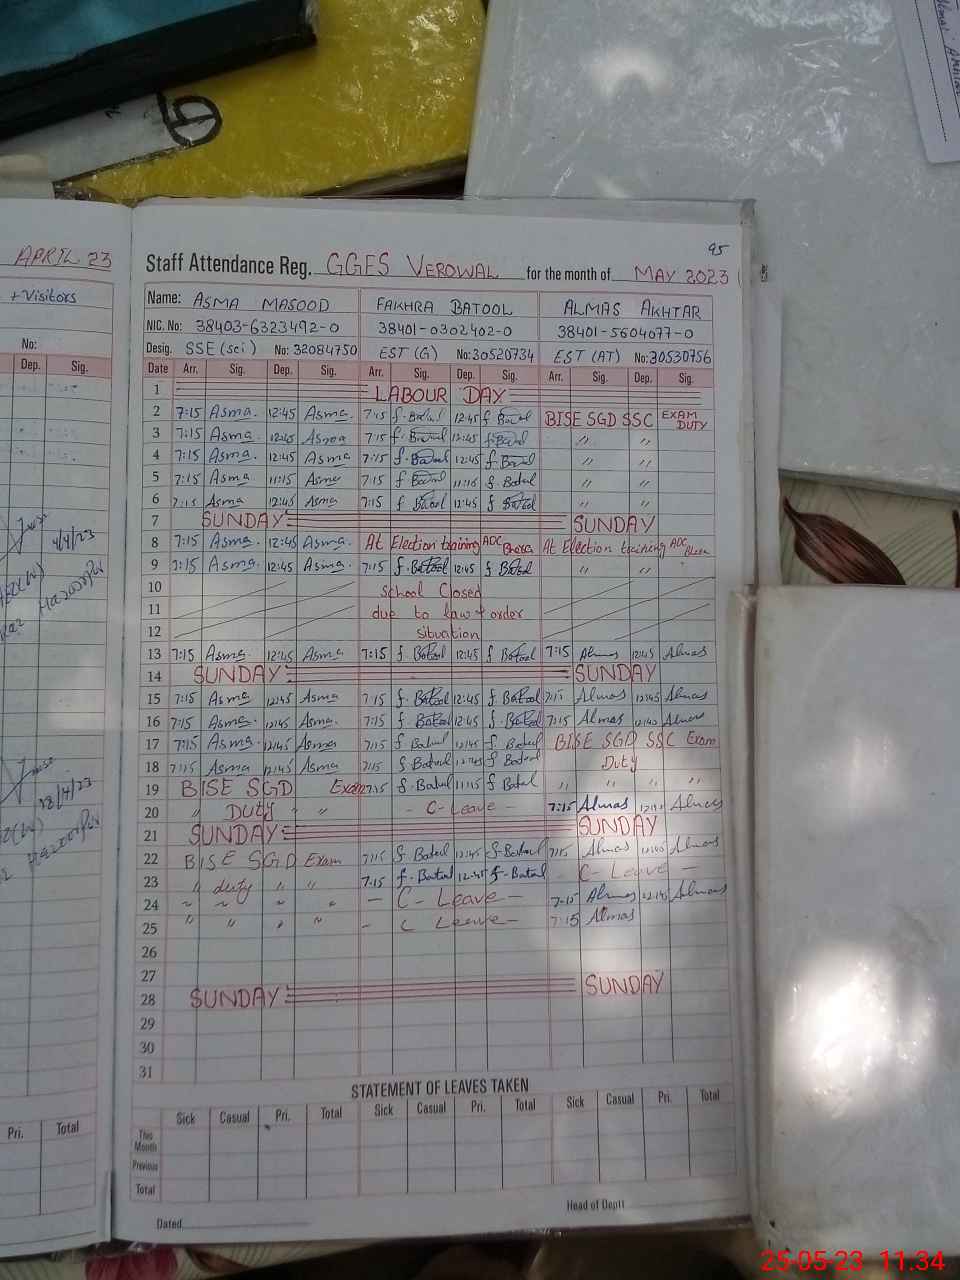 95
APRIL 23
Staff Attendance Reg. GGES VEROWAL for the month of MAY 2023
+ Visitors
Name: ASMA MASOOD FAKHRA BATOOL ALMAS AKHTAR
NIC. No: 38403-6323492-0 38401-0302402-0 38401-5604077-0
No:
Desig. SSE (sci) No: 32084750 EST (G) No: 30520734 EST (AT) No: 30530756
Dep. Sig.
Date Arr. Sig. Dep. Sig. Arr. Sig. Dep. Sig. Arr. Sig. Dep. Sig.
1 LABOUR DAY
2 7:15 Asma. 12:45 Asma. 7:15 f. Batool 12:45 f. Batool BISE SGD SSC EXAM DUTY
3 7:15 Asma. 12:45 Asma 7:15 f. Batool 12:45 f. Batool " "
4 7:15 Asma 12:45 Asma 7:15 f. Batool 12:45 f. Batool " "
5 7:15 Asma 11:15 Asma 7:15 f. Batool 11:16 f. Batool " "
6 7:15 Asma 12:45 Asma 7:15 f Batool 12:45 f Batool " "
7 SUNDAY SUNDAY
8 7:15 Asma. 12:45 Asma. At Election training ADC At Election training ADC
9 7:15 Asma. 12:45 Asma. 7:15 f. Batool 12:45 f Batool " "
10 School Closed
11 due to law & order
12 situation
13 7:15 Asma 12:45 Asma 7:15 f Batool 12:45 f Batool 7:15 Almas 12:45 Almas
14 SUNDAY SUNDAY
15 7:15 Asma 12:45 Asma 7:15 f. Batool 12:45 f. Batool 7:15 Almas 12:45 Almas
16 7:15 Asma. 12:45 Asma. 7:15 f. Batool 12:45 f. Batool 7:15 Almas 12:40 Almas
17 7:15 Asma. 12:45 Asma 7:15 f Batool 12:45 f Batool BISE SGD SSC Exam
18 7:15 Asma 12:45 Asma 7:15 f Batool 12:45 f Batool Duty
19 BISE SGD Exam 7:15 f. Batool 11:15 f Batool " " " "
20 " DUTY " " - C-Leave - 7:15 Almas Almas
21 SUNDAY SUNDAY
22 BISE SGD Exam 7:15 f Batool 12:45 f. Batool 7:15 Almas 12:45 Almas
23 " duty " " 7:15 f. Batool 12:45 f. Batool - C-Leave -
24 " " " " - C-Leave - 7:15 Almas 12:45 Almas
25 " " " " - C Leave - 7:15 Almas
26
27
28 SUNDAY SUNDAY
29
30
31
4/4/23
18/4/23
STATEMENT OF LEAVES TAKEN
Pri. Total
Sick Casual Pri. Total Sick Casual Pri. Total Sick Casual Pri. Total
This Month
Previous
Total
Dated Head of Deptt
25-05-23 11.34